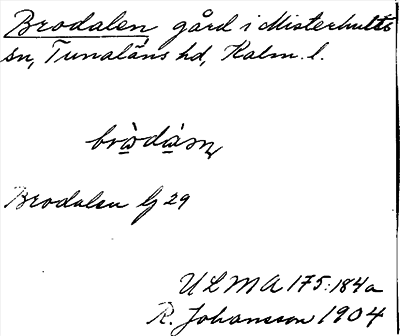 Brodalen gård i Misterhults
sn, Tunaläns hd, Kalm. l.
Brodalen Lj 29
ULMA 175:184a
R. Johansson 1904